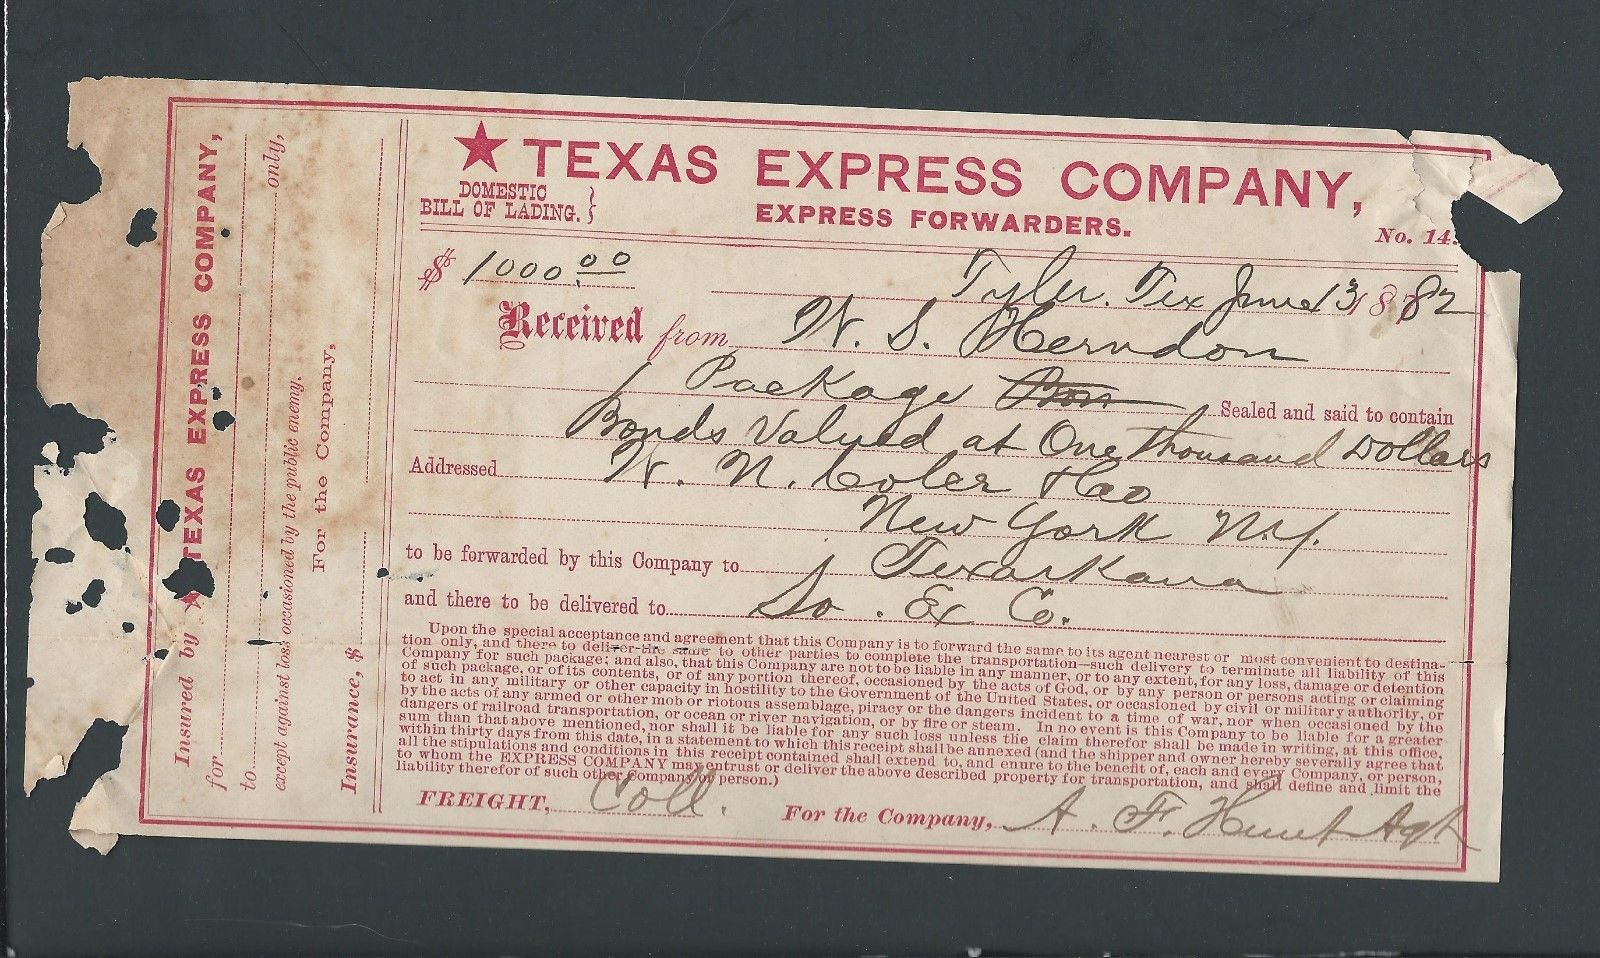 Insured by ★ TEXAS EXPRESS COMPANY, ★ TEXAS EXPRESS COMPANY,
for
to only,
except against loss occasioned by the public enemy.
For the Company,
Insurance, $
★ TEXAS EXPRESS COMPANY,
DOMESTIC
BILL OF LADING. }
EXPRESS FORWARDERS.
No. 14.
$ 1000.00
Tyler. Tex June 13 1882
Received from W. S. Herndon
1 Package Box Sealed and said to contain
Bonds Valued at One Thousand Dollars
Addressed W. N. Coler & Co
New York N.Y.
to be forwarded by this Company to Texarkana
and there to be delivered to So. Ex Co.
Upon the special acceptance and agreement that this Company is to forward the same to its agent nearest or most convenient to destina-
tion only, and there to deliver the same to other parties to complete the transportation—such delivery to terminate all liability of this
Company for such package; and also, that this Company are not to be liable in any manner, or to any extent, for any loss, damage or detention
of such package, or of its contents, or of any portion thereof, occasioned by the acts of God, or by any person or persons acting or claiming
to act in any military or other capacity in hostility to the Government of the United States, or occasioned by civil or military authority, or
by the acts of any armed or other mob or riotous assemblage, piracy or the dangers incident to a time of war, nor when occasioned by the
dangers of railroad transportation, or ocean or river navigation, or by fire or steam. In no event is this Company to be liable for a greater
sum than that above mentioned, nor shall it be liable for any such loss unless the claim therefor shall be made in writing, at this office,
within thirty days from this date, in a statement to which this receipt shall be annexed (and the shipper and owner hereby severally agree that
all the stipulations and conditions in this receipt contained shall extend to, and enure to the benefit of, each and every Company, or person,
to whom the EXPRESS COMPANY may entrust or deliver the above described property for transportation, and shall define and limit the
liability therefor of such other Company or person.)
FREIGHT, Coll. For the Company, A. F. Hunt Agt